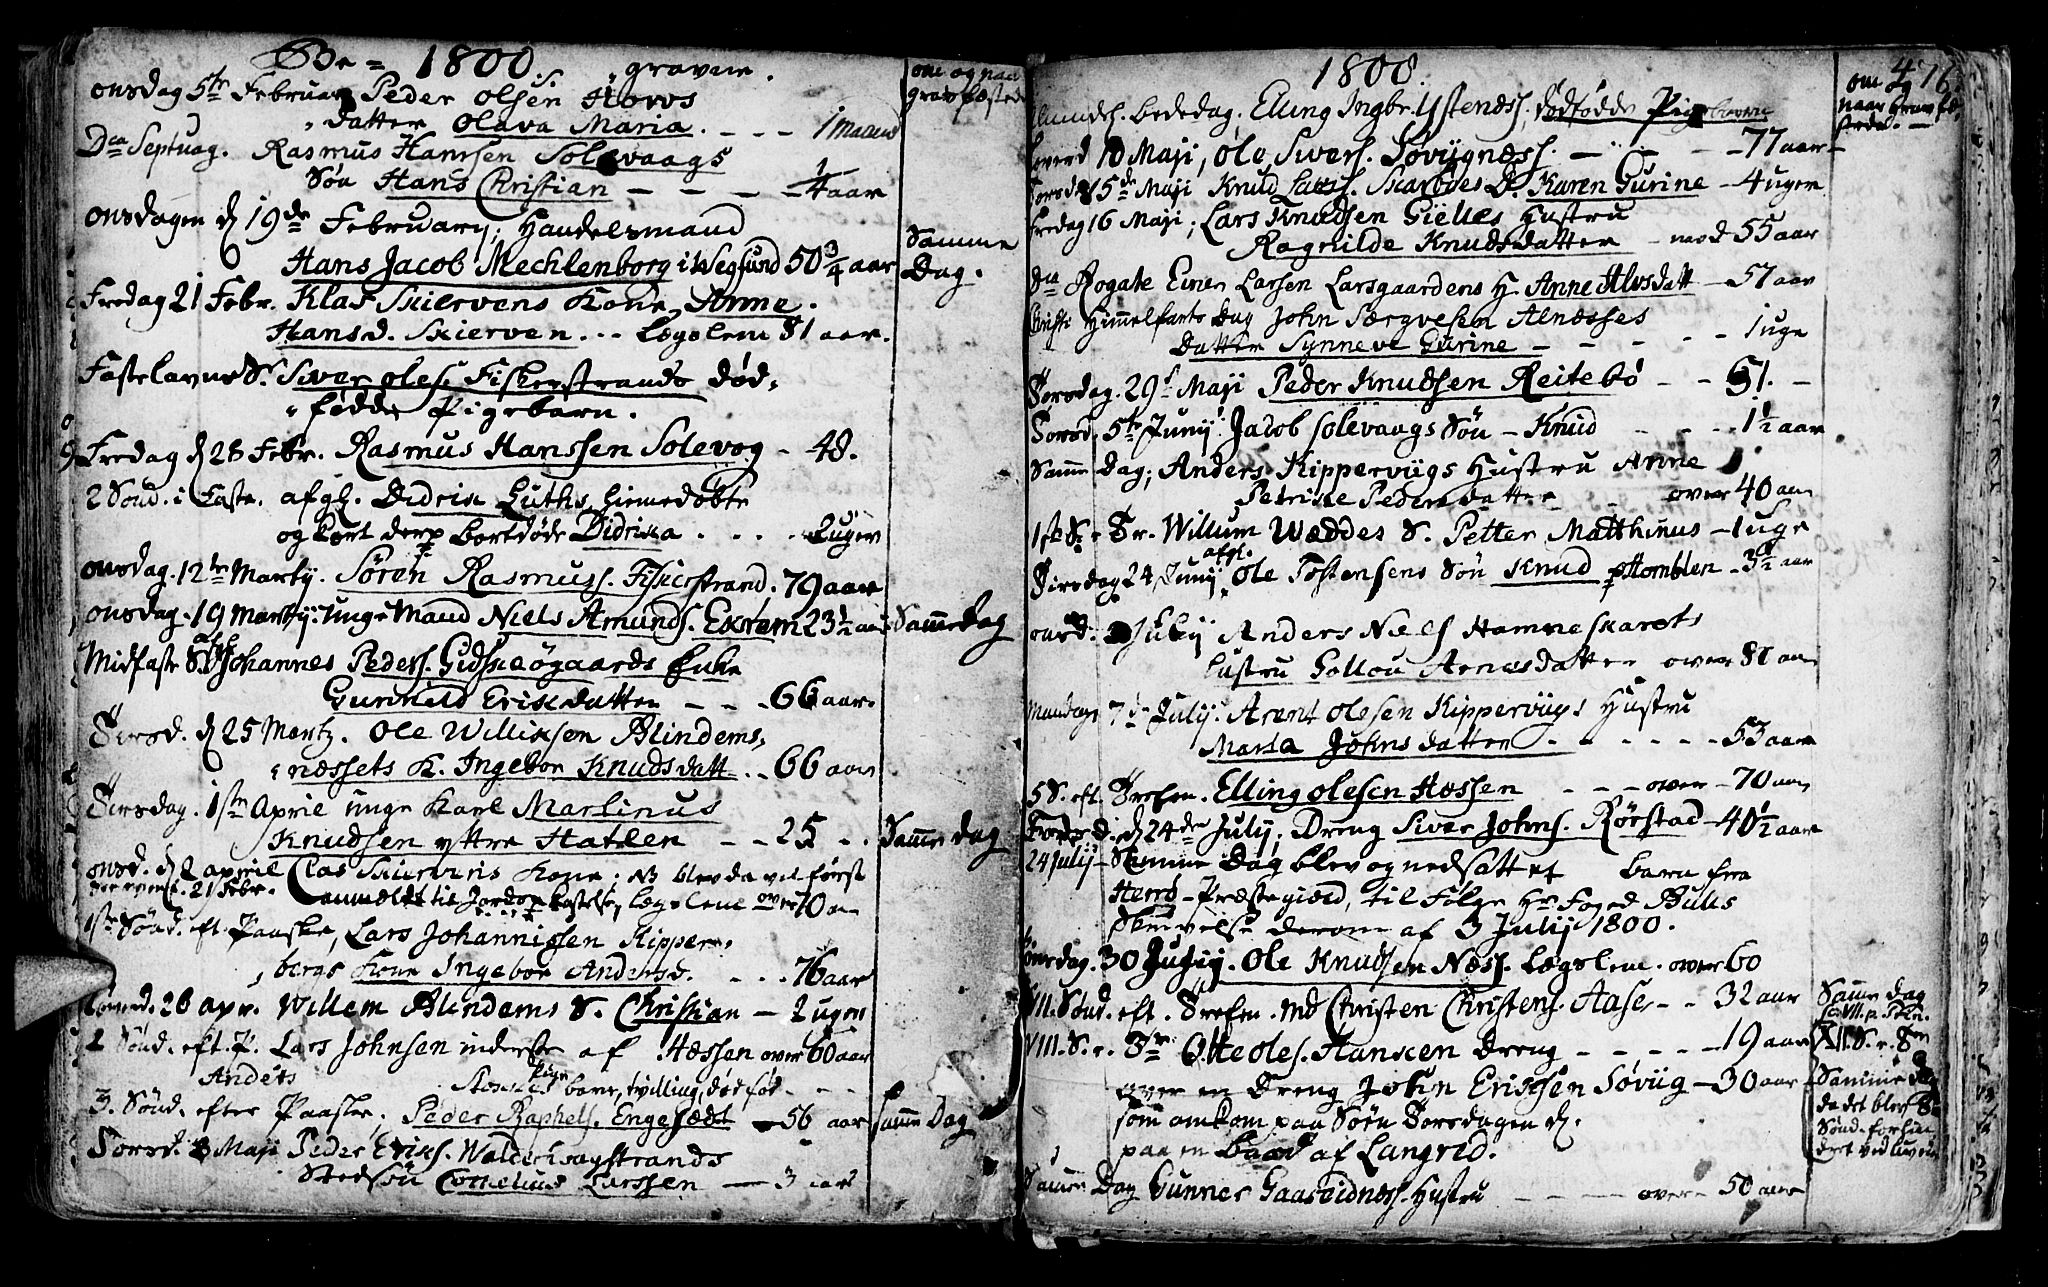 Be = 1800. gravne.
om og naar
grav fæstede
onsdag 5te Februar Peder Olsen Hovs
datter Olava Maria. - - - 1 maaned
Dca Septuag. Rasmus Hanssen Solevaags
Søn Hans Christian - - - - 1/4 aar
onsdagen d 19de February; Handelsmand
Hans Jacob Mechlenborg i Wegsund 50 3/4 aar
Samme
Dag.
Fredag 21 Febr. Klas Skiervens Kone Anne
Hansd. Skierven... Lægslem 81 aar.
Fastelavns S. Siver Oles. Fiskerstrands død-
fødde Pigebarn.
Fredag d 28 Febr. Rasmus Hanssen Solevog - 48.
2 Sønd. i Faste. afgl. Didrik Luths hiemedøbte
og kort derp bortdøde Didrika .... 2 uger
onsdag. 12te Martij. Søren Rasmuss. Fiskerstrand. 79 aar
onsdag. 19 Martij. unge Mand Niels Amunds. Eksrem 23 1/2 aar Samedag
Midfaste S. afgl Johannes Peders. Gidskeøgaards Enke
Gunhild Erixdatter - - - 66 aar.
Tirsd. d 25 Martz. Ole Willixsen Blindems-
næssets K. Ingebor Knudsdatt... 66 aar
Tirsdag. 1ste April unge Karl Martinus
Knudsen yttre Hatlen - - 25.. Same dag
onsd. d. 2 april Clas Skiervens Kone; NB blev da vel først
21 Febr. anmeldt til Jordpaakastelse, Lægslem over 70 aar
1ste Sønd. eft. Paaske, Lars Johannissen Kipper-
bergs Kone Ingebor Andersd. - - - 76 aar
Loverd. 26 apr. Willem Blindems S. Christian - 2 uger
2 Sønd. eft. P. Lars Johnsen inderste af Hessen over 60 aar
Andets pige barn, tvilling, død fød - - -
3. Sønd. efter Paaske, Peder Raphels. Engesædt - 56 aar Same Dag
Torsd. 8 Maji Peder Erixs. Walderhaugstrands
Stedsøn Cornelius Larssen - 3 aar
1800.
476
om og
naar Grav fæ-
stedes. -
Alminde. Bededag. Elling Ingbr. Ystenæss. dødfødde Pigebarn
Loverd 10 Maji, Ole Sivers. Søviignæss. - - - 77 aar
Torsd. 15de Maji Knud Lass. Skarbøes D. Karen Gurine - 4 uger
Fredag 16 Maji; Lars Knudsen Gielles Hustru
Ragnilde Knudsdatter - mod 55 aar
Dca Rogate Einer Larsen Larsgaardens H. Anne Alvsdatt - 57 aar
Christi Himmelfarts Dag John Sergvesen Alnesses
datter Synneve Gurine - - - - 1 uge
Torsdag. 29. Maji Peder Knudsen Reitebø - - 61. -
Torsd. 5te Junij Jacob Solevaags Søn - Knud - - - 1 1/2 aar
Samme Dag; Anders Kipperviigs Hustru Anne
Petrike Pedersdatter - - over 40 aar
1ste S. e. Tr. Willum Wæddes S. Petter Matthinus - 1 uge
Tirsdag 24 Junij afgl. Ole Tostensens Søn Knud Homblen - 3 1/2 aar
onsd. 2 Julij Anders Niels. Hamneskarets
Hustru Gollou Arnesdatter over 81 aar
Mandag 7de Julij. Arent Olesen Kipperviigs Hustru
Marta Johnsdatter - - - - - - 53 aar
5 S. eft. Trefen. Elling Olesen Hessen - - - over - 70 aar
Torsd. d 24de Julij; Dreng Siver Johns. Rørstad - 40 1/2 aar
24 Julij - Samme Dag blev og nedsatt et barn fra
Herrø - Præstegield, til Følge Hr Foged Buhls
Skrivelse derom af 3 Julij 1800.
Onsdag. 30 Julij. Ole Knudsen Næss. Lægslem. over 60
VII. Sønd. eft. Trefen. Md Christen Christens. Aase - - 32 aar
Same dag
sc: VII. p. Trin.
VIII. S. e. Tr. Otte Oles. Hanscen Dreng - - - - - 19 aar XII. S. e. Tr.
over en Dreng John Erichsen Søviig - 30 aar
som omkom paa Søen Torsdagen d.
paa en Baad af Langrid.
Samme dag
da det blev 8
Sønd. forhin
dret ved uveir
Samme Dag Gunner Gaaseidnæss. Hustru - - - over - 50 aar